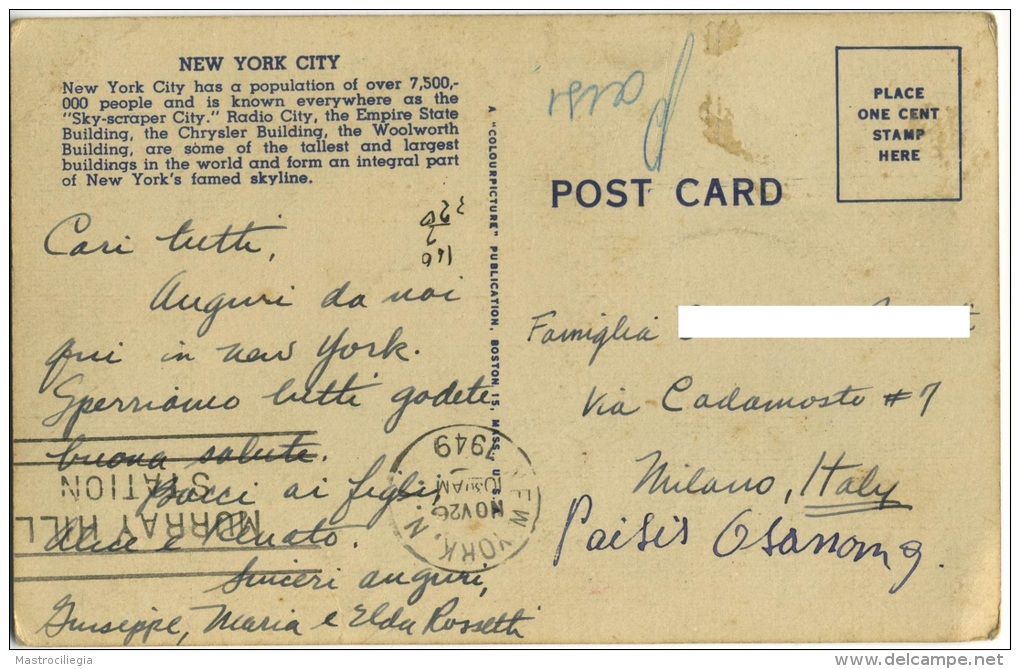 NEW YORK CITY
New York City has a population of over 7,500,-
000 people and is known everywhere as the
"Sky-scraper City." Radio City, the Empire State
Building, the Chrysler Building, the Woolworth
Building, are some of the tallest and largest
buildings in the world and form an integral part
of New York's famed skyline.
Cari tutti,
Auguri da noi
qui in new York.
Sperriamo tutti godete
buona salute.
Bacci ai figli,
Alice e Renato.
Sinceri auguri,
Giuseppe, Maria e Elda Rossetti
A "COLOURPICTURE" PUBLICATION, BOSTON 15, MASS., U.S.
POST CARD
PLACE
ONE CENT
STAMP
HERE
Famiglia
Via Cadamosto #7
Milano, Italy
NEW YORK, N.
NOV 26
1949
MURRAY HILL
STATION
Mastrociliegia
delcampe.net